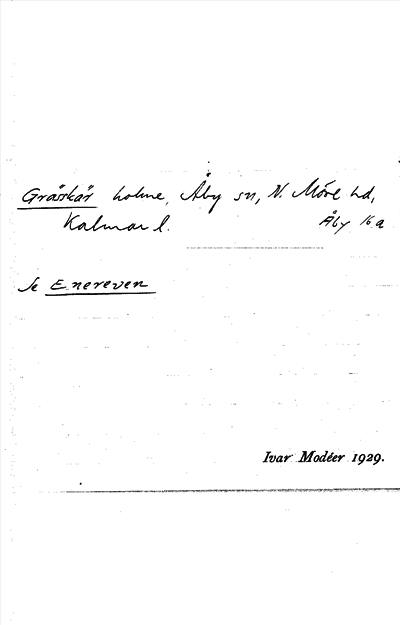 Grässkär holme, Åby sn, N. Möre hd,
Kalmar l. Åby 16a
Se Enereven
Ivar Modéer 1929.